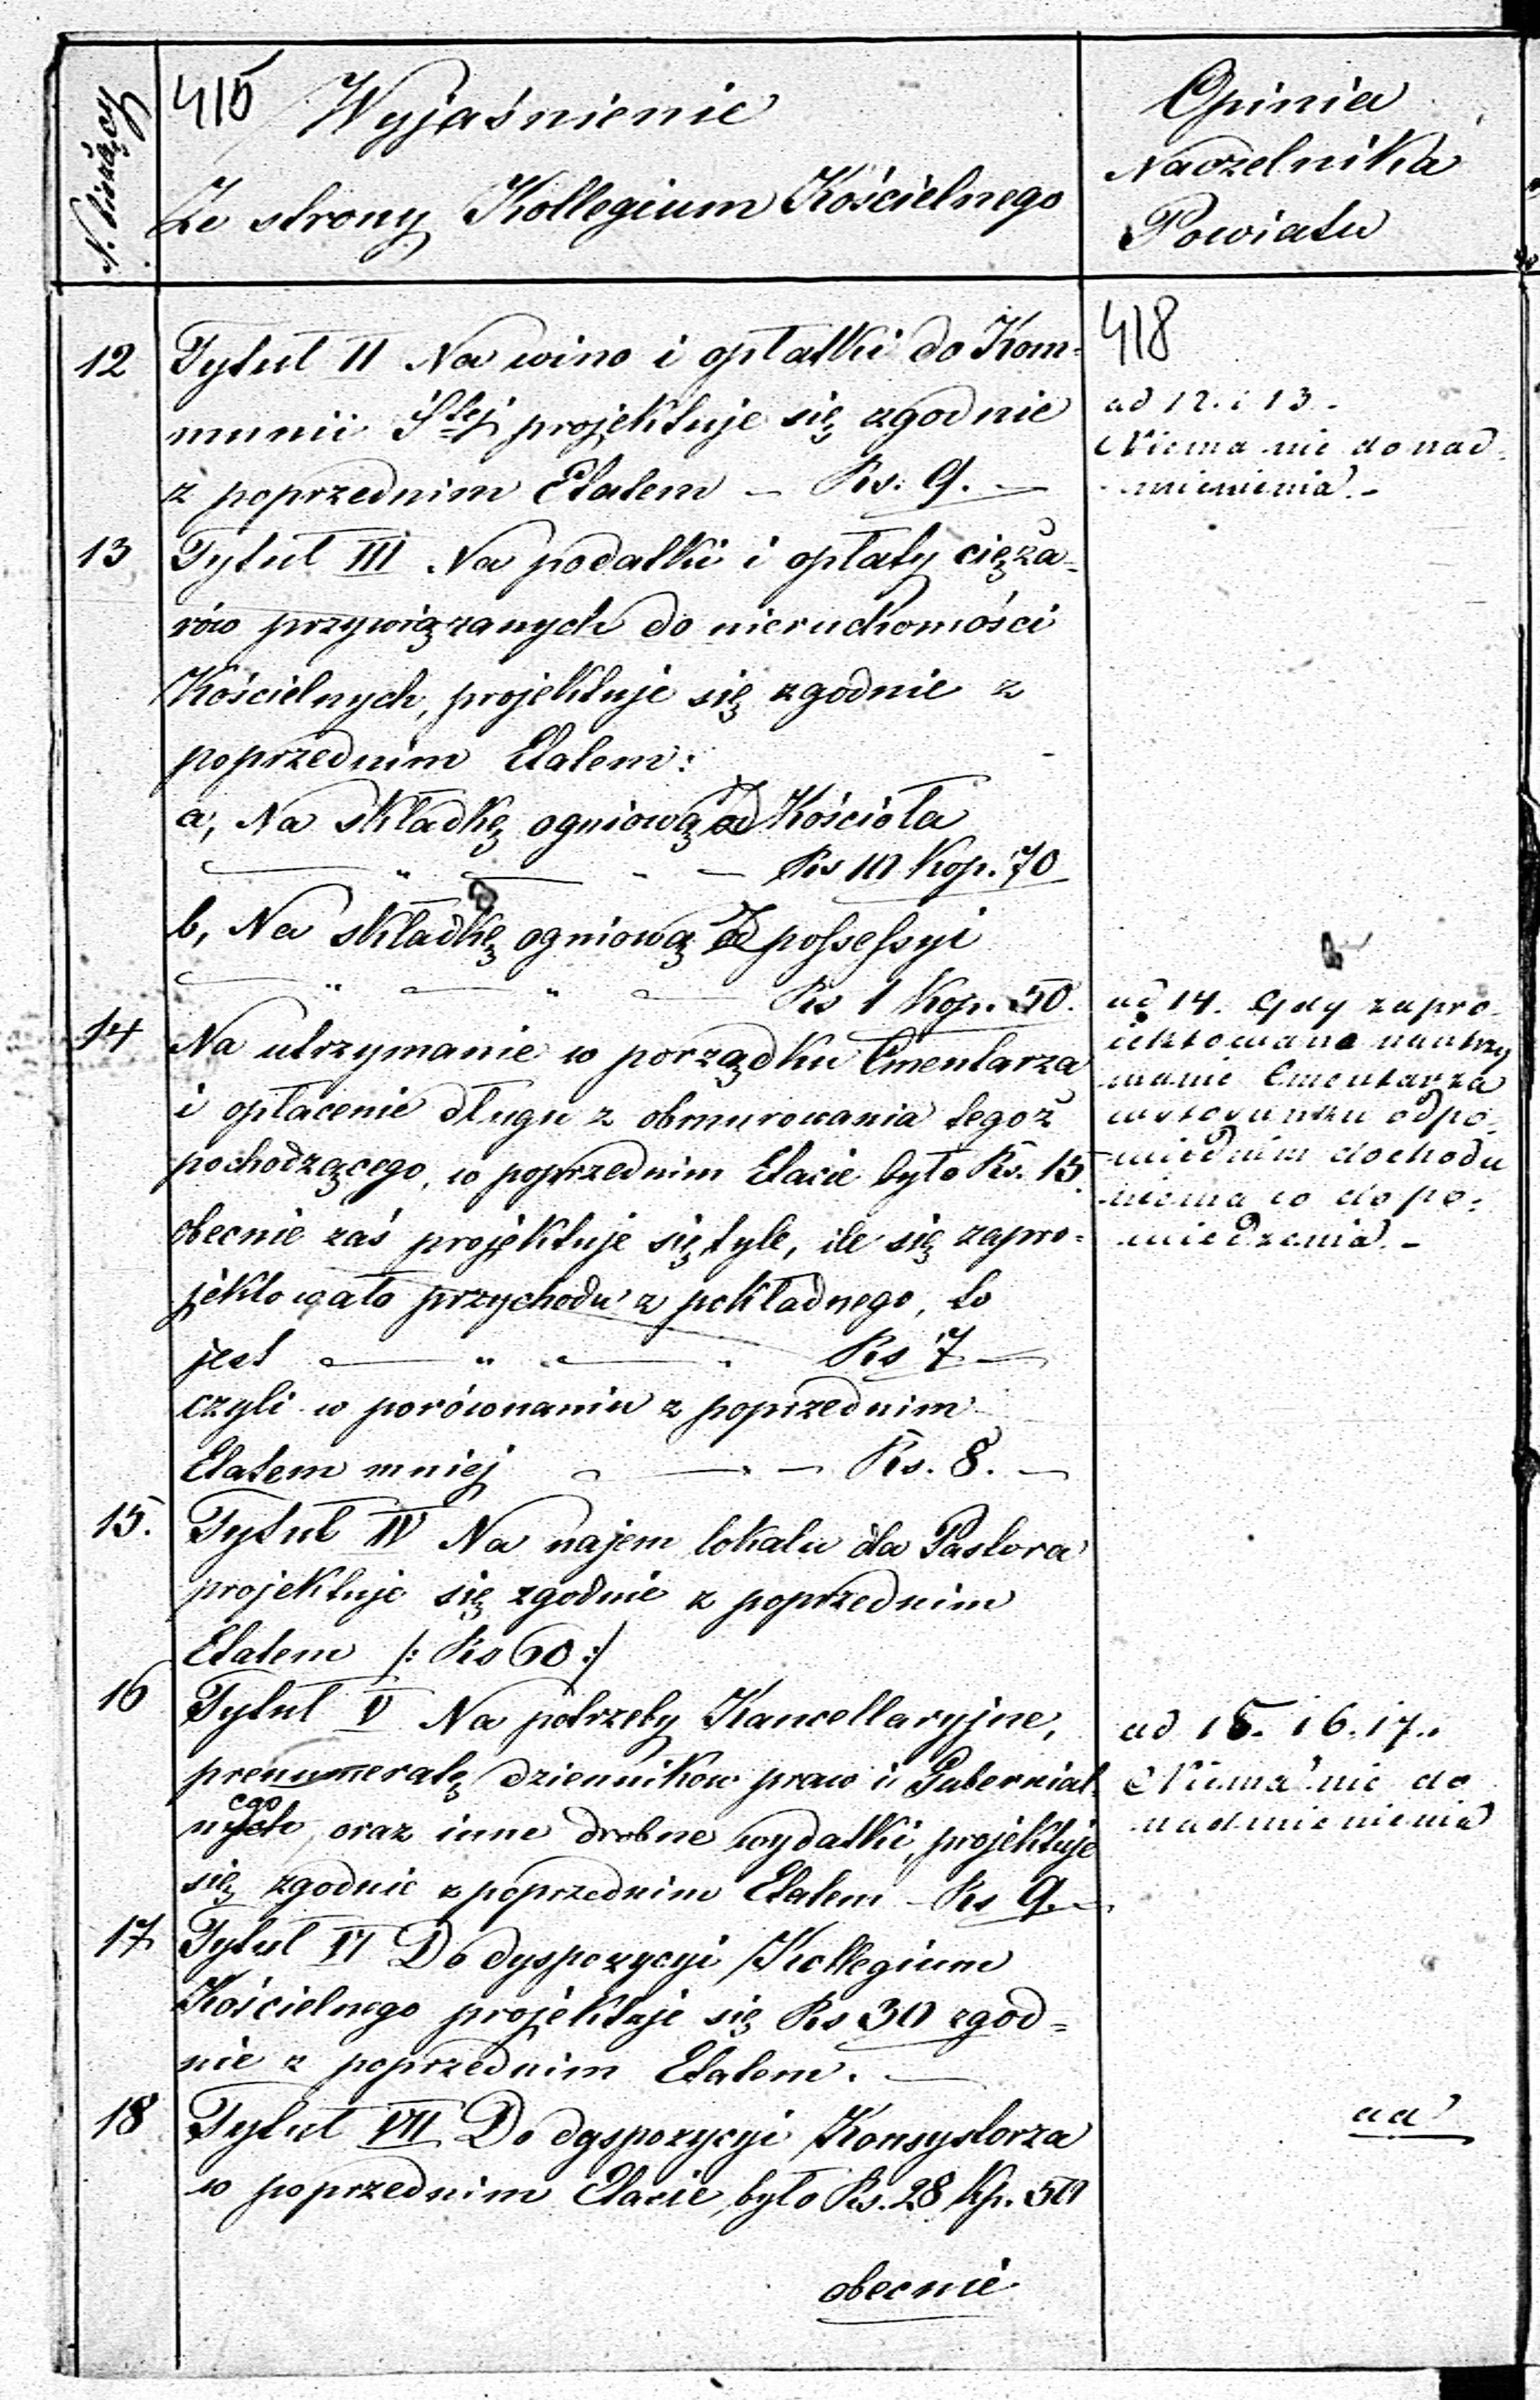 N. bieżący
415 Wyjaśnienie
Ze strony Kollegium Kościelnego
Opinia
Naczelnika
Powiatu
12 Tytuł II Na wino i opłatki do Kom=
munii Ś-tej projektuje się zgodnie
z poprzednim Etatem — Rs. 9. —
13 Tytuł III Na podatki i opłaty cięża=
rów przywiązanych do nieruchomości
Kościelnych, projektuje się zgodnie z
poprzednim Etatem:
a, Na składkę ogniową od Kościoła
— „ — - — Rs 10 Kop. 70
b, Na składkę ogniową od possessyi
— „ — „ — Rs 1 Kop. 50.
14 Na utrzymanie w porządku Cmentarza
i opłacenie długu z obmurowania tegoż
pochodzącego, w poprzednim Etacie było Rs. 15.
obecnie zaś projektuje się tyle, ile się zapro=
jektowało przychodu z pokładnego, to
jest — „ — . Rs 7 —
czyli w porównaniu z poprzednim
Etatem mniej — — Rs. 8. —
15. Tytuł IV Na najem lokalu dla Pastora
projektuje się zgodnie z poprzednim
Etatem /: Rs 60 :/
16 Tytuł V Na potrzeby Kancellaryjne,
prenumeratę dzienników praw i Gubernial-
nych ego oraz inne drobne wydatki, projektuje
się zgodnie z poprzednim Etatem — Rs 9. —
17 Tytuł VI Do dyspozycyi Kollegium
Kościelnego projektuje się Rs 30 zgod=
nie z poprzednim Etatem. —
18 Tytuł VII Do dyspozycyi Konsystorza
w poprzednim Etacie, było Rs. 28 Kp. 50
obecnie
418
ad 12. i 13.
Niema nic do nad-
mienienia. -
ad 14. Gdy zapro-
iektowano na utrzy
manie Cmentarza
w stosunku odpo-
wiednim dochodu
niema co do po-
wiedzenia. -
ad 15. 16. 17.
Niema nic do
nadmienienia
ad